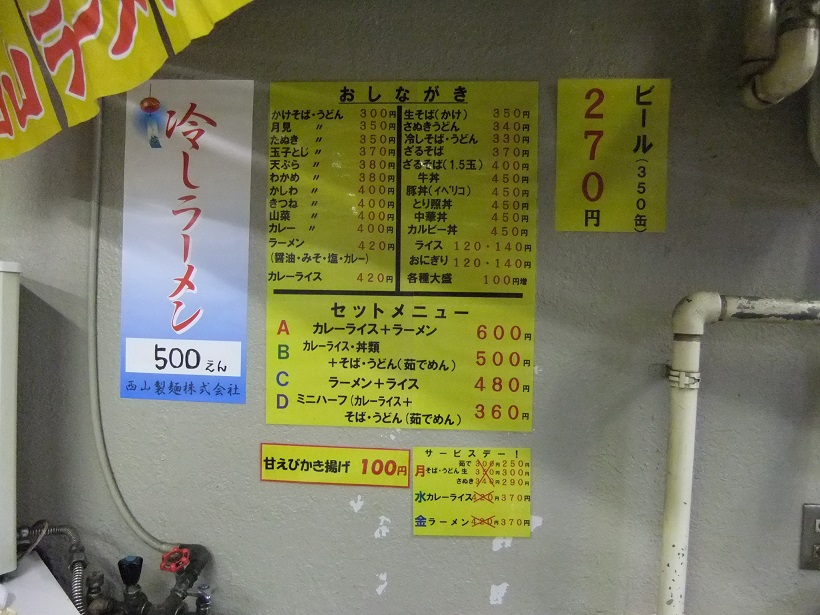 冷しラーメン
500えん
西山製麺株式会社
おしながき
かけそば・うどん 300円
月見 〃 350円
たぬき 〃 350円
玉子とじ 〃 370円
天ぷら 〃 380円
わかめ 〃 380円
かしわ 〃 400円
きつね 〃 400円
山菜 〃 400円
カレー 〃 400円
ラーメン 420円
(醤油・みそ・塩・カレー)
カレーライス 420円
生そば(かけ) 350円
さぬきうどん 340円
冷しそば・うどん 330円
ざるそば 370円
ざるそば(1.5玉) 400円
牛丼 450円
豚丼(イベリコ) 450円
とり照丼 450円
中華丼 450円
カルビー丼 450円
ライス 120・140円
おにぎり 120・140円
各種大盛 100円増
セットメニュー
A カレーライス+ラーメン 600円
B カレーライス・丼類
+そば・うどん(茹でめん) 500円
C ラーメン+ライス 480円
D ミニハーフ(カレーライス+
そば・うどん(茹でめん) 360円
ビール(350缶)
270円
甘えびかき揚げ 100円
サービスデー!
茹で 300円250円
月そば・うどん 生 350円300円
さぬき 340円290円
水カレーライス420円370円
金ラーメン420円370円